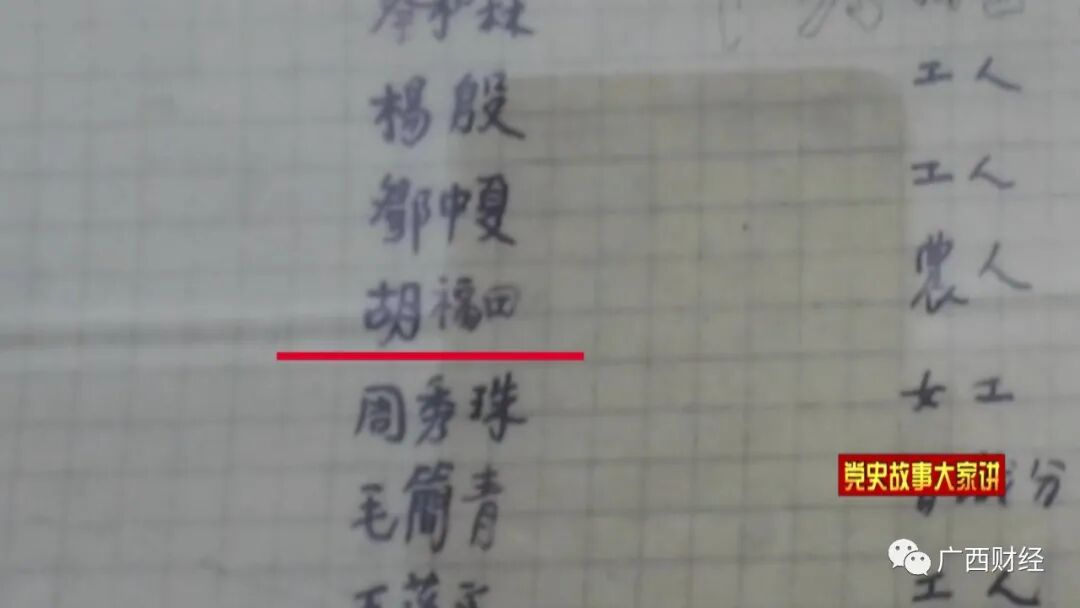 楊殷 工人
鄧中夏 工人
胡福田 農人
周秀珠 女工
毛簡青 分
党史故事大家讲
工人
广西财经